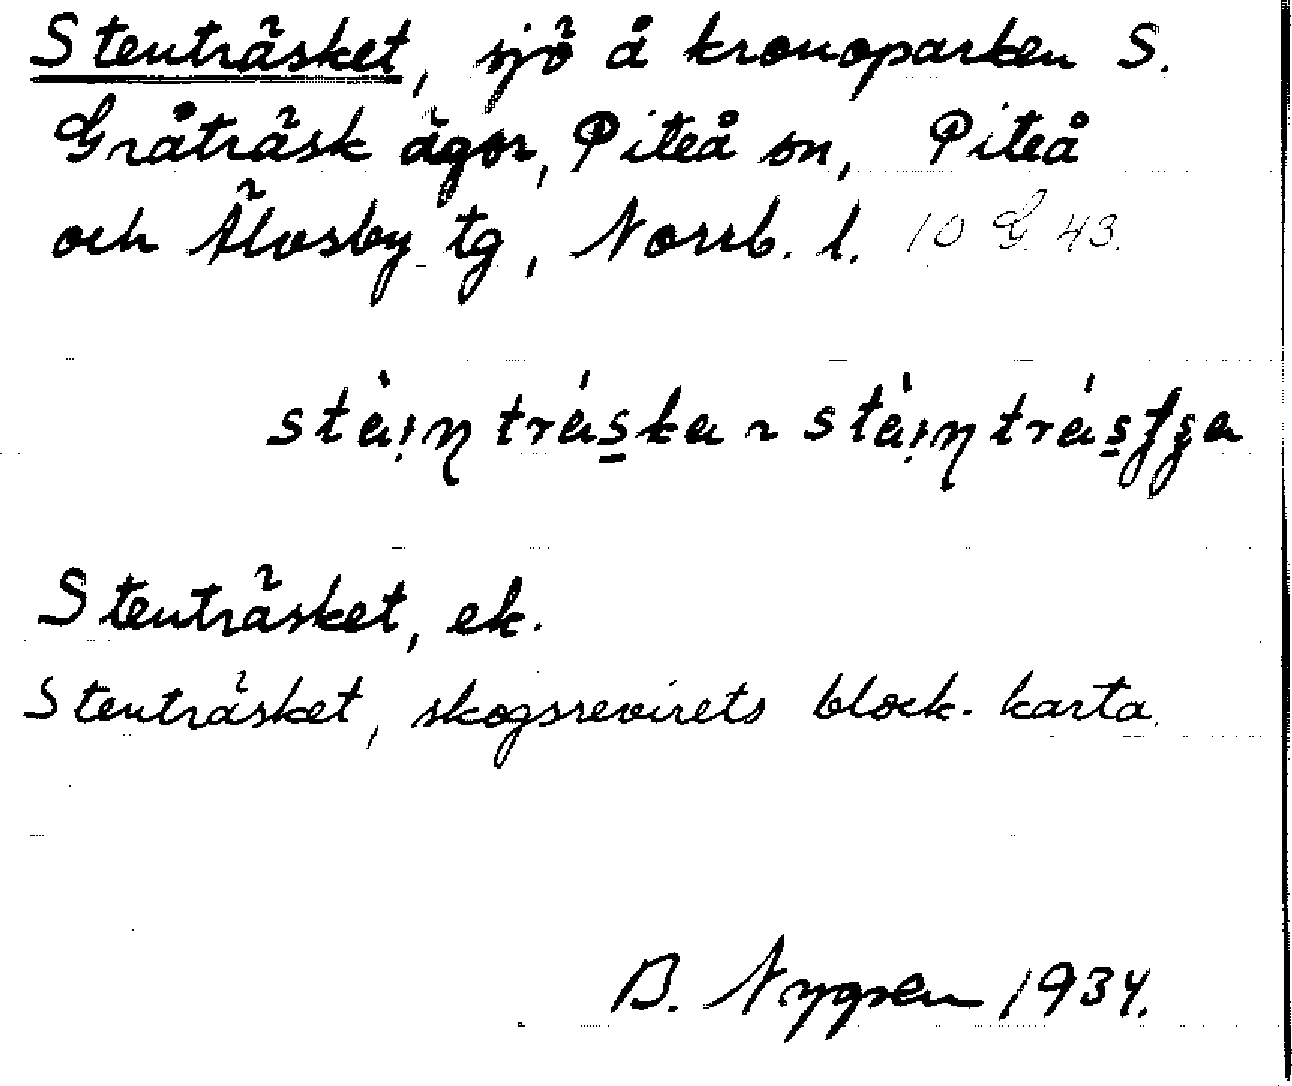 Stenträsket, sjö å kronoparken S.
Gråträsk ägor, Piteå sn, Piteå
och Älvsby tg, Norrb. l. 10 G 43.
Stenträsket, ek.
Stenträsket, skogsrevirets block-karta.
B. Nygren 1934.